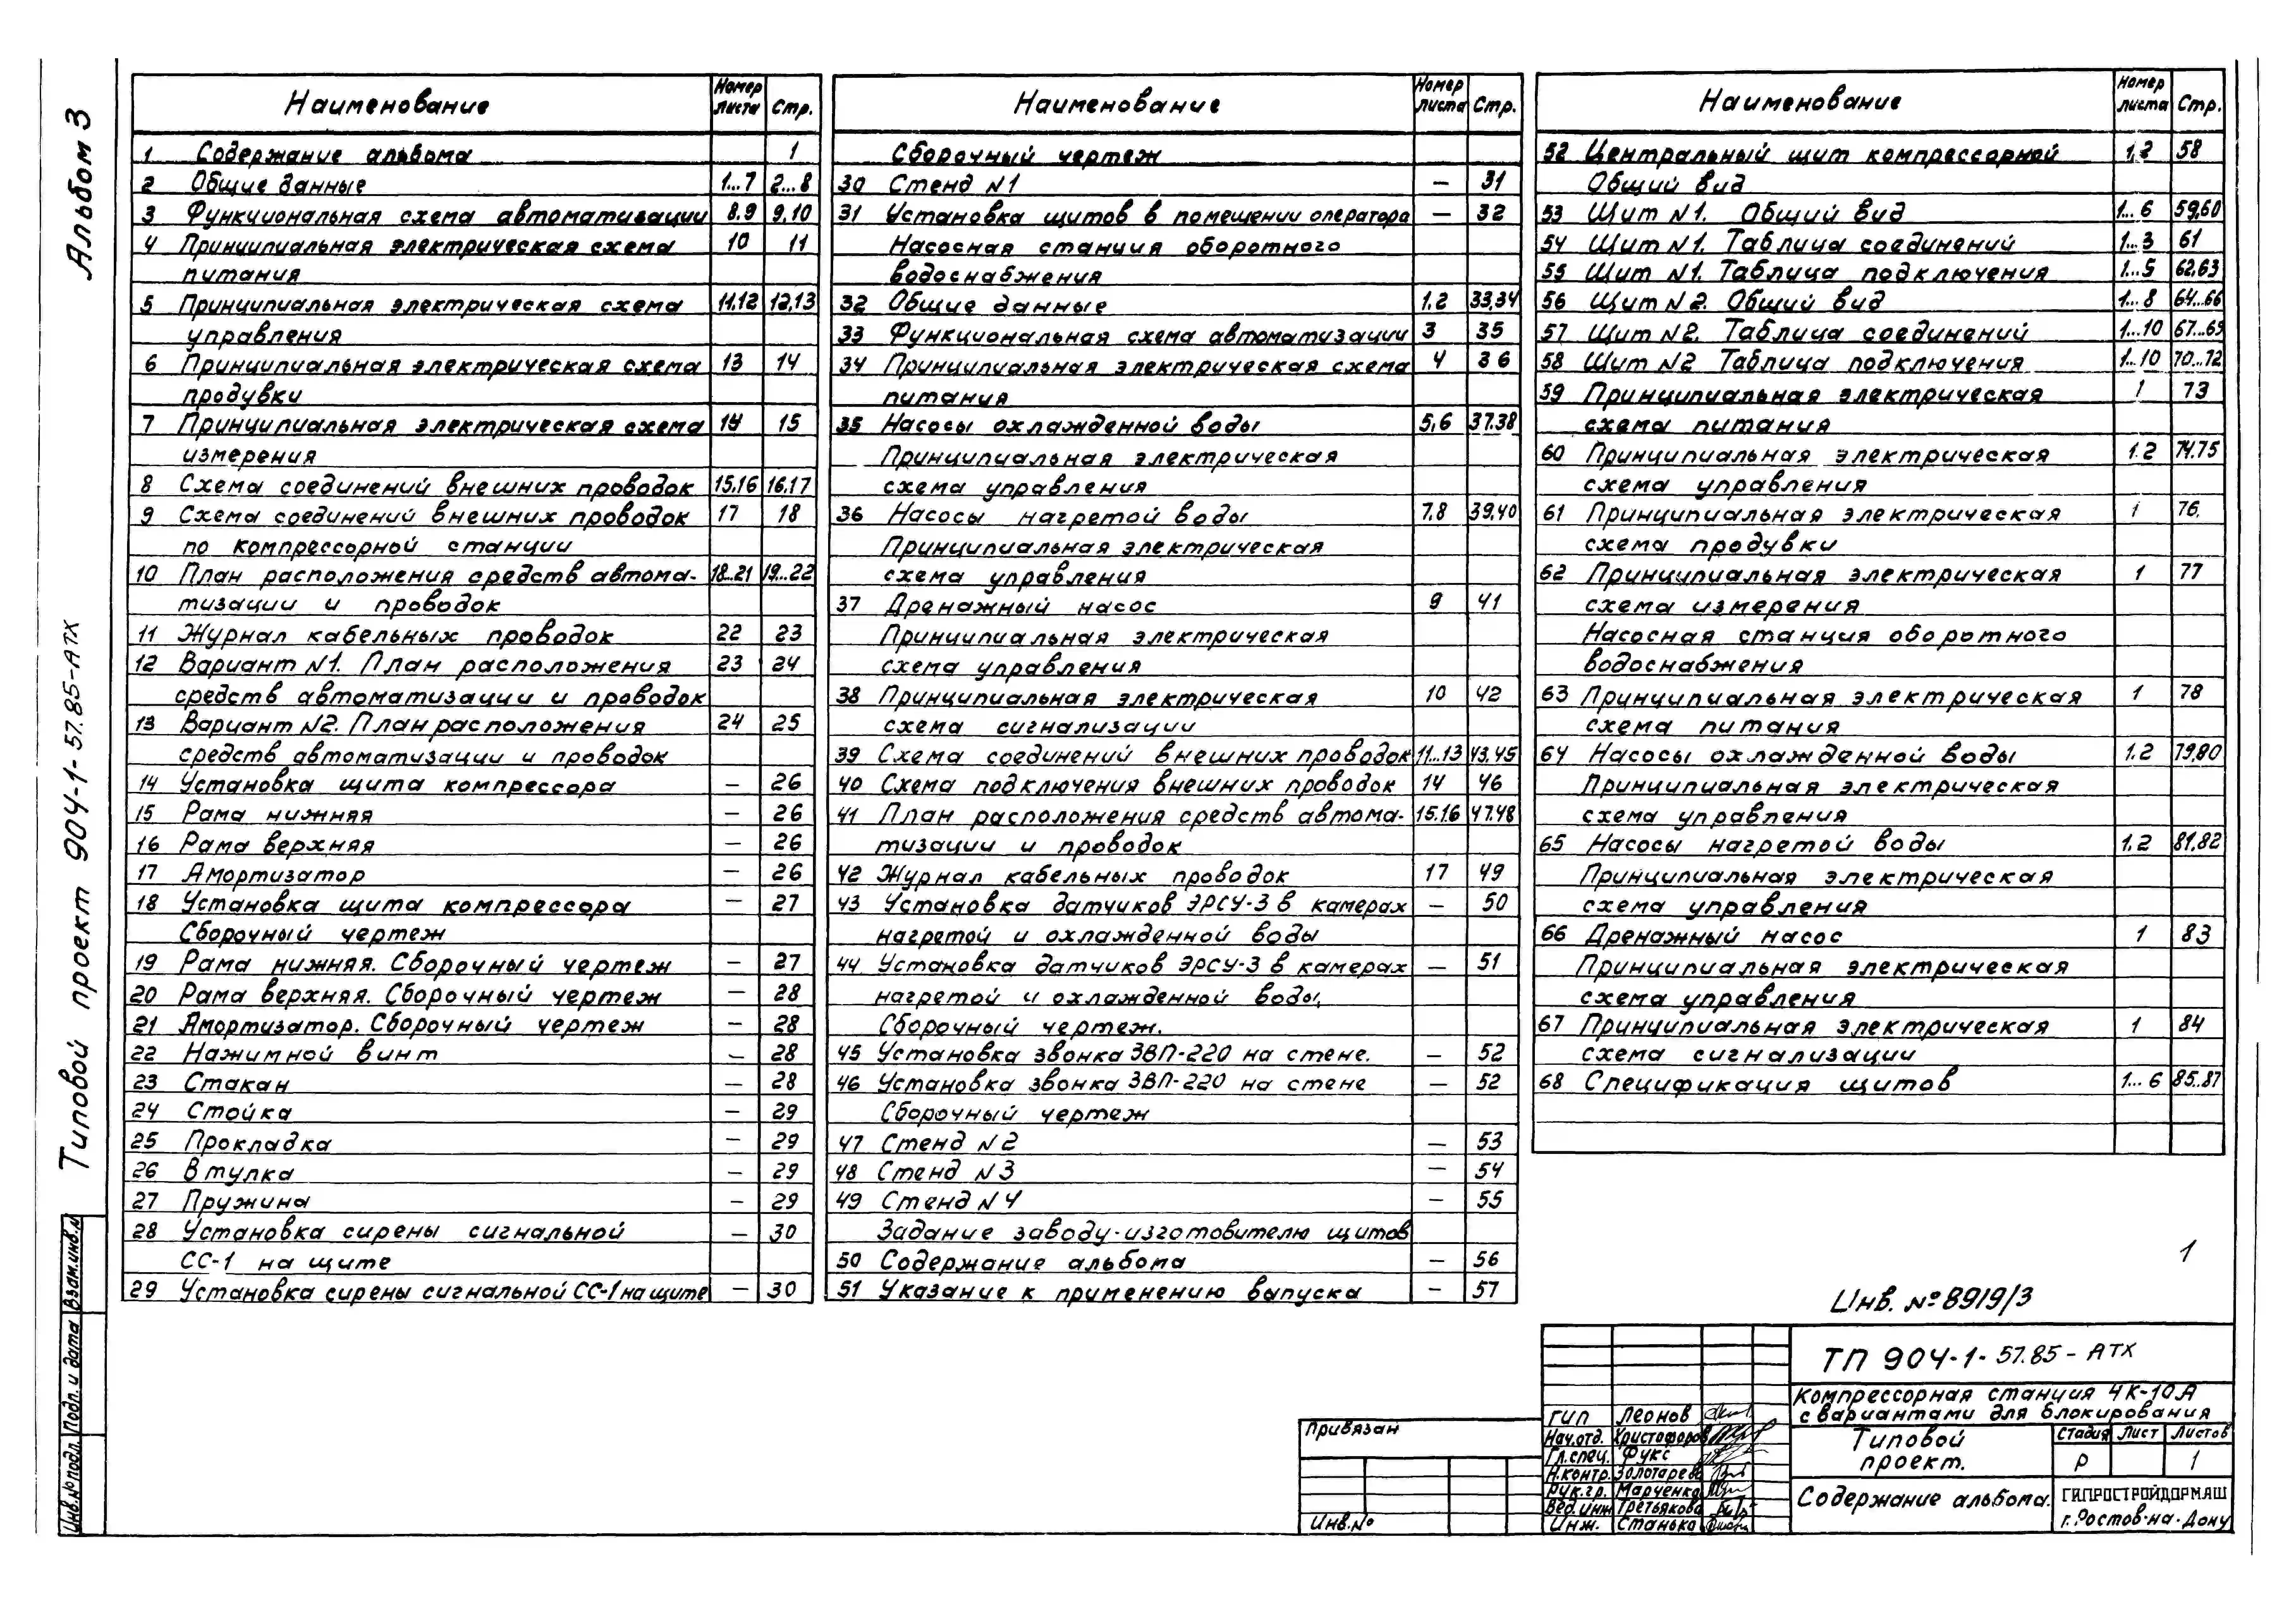 Альбом 3
Типовой проект 904-1-57.85-АТХ
Взам.инв.№
Подп. и дата
Инв.№ подл.
Наименование Номер листа Стр.
1 Содержание альбома 1
2 Общие данные 1...7 2...8
3 Функциональная схема автоматизации 8.9 9,10
4 Принципиальная электрическая схема 10 11
питания
5 Принципиальная электрическая схема 11.12 12,13
управления
6 Принципиальная электрическая схема 13 14
продувки
7 Принципиальная электрическая схема 14 15
измерения
8 Схема соединений внешних проводок 15,16 16,17
9 Схема соединений внешних проводок 17 18
по компрессорной станции
10 План расположения средств автома- 18...21 19...22
тизации и проводок
11 Журнал кабельных проводок 22 23
12 Вариант №1. План расположения 23 24
средств автоматизации и проводок
13 Вариант №2. План расположения 24 25
средств автоматизации и проводок
14 Установка щита компрессора – 26
15 Рама нижняя – 26
16 Рама верхняя – 26
17 Амортизатор – 26
18 Установка щита компрессора – 27
Сборочный чертеж
19 Рама нижняя. Сборочный чертеж – 27
20 Рама верхняя. Сборочный чертеж – 28
21 Амортизатор. Сборочный чертеж – 28
22 Нажимной винт – 28
23 Стакан – 28
24 Стойка – 29
25 Прокладка – 29
26 Втулка – 29
27 Пружина – 29
28 Установка сирены сигнальной – 30
СС-1 на щите
29 Установка сирены сигнальной СС-1 на щите – 30
Наименование Номер листа Стр.
Сборочный чертеж
30 Стенд №1 – 31
31 Установка щитов в помещении оператора – 32
Насосная станция оборотного
водоснабжения
32 Общие данные 1,2 33,34
33 Функциональная схема автоматизации 3 35
34 Принципиальная электрическая схема 4 36
питания
35 Насосы охлажденной воды 5,6 37.38
Принципиальная электрическая
схема управления
36 Насосы нагретой воды 7.8 39,40
Принципиальная электрическая
схема управления
37 Дренажный насос 9 41
Принципиальная электрическая
схема управления
38 Принципиальная электрическая 10 42
схема сигнализации
39 Схема соединений внешних проводок 11...13 43.45
40 Схема подключения внешних проводок 14 46
41 План расположения средств автома- 15.16 47.48
тизации и проводок
42 Журнал кабельных проводок 17 49
43 Установка датчиков ЭРСУ-3 в камерах – 50
нагретой и охлажденной воды
44. Установка датчиков ЭРСУ-3 в камерах – 51
нагретой и охлажденной воды,
Сборочный чертеж.
45 Установка звонка ЗВП-220 на стене. – 52
46 Установка звонка ЗВП-220 на стене – 52
Сборочный чертеж
47 Стенд №2 – 53
48 Стенд №3 – 54
49 Стенд №4 – 55
Задание заводу-изготовителю щитов
50 Содержание альбома – 56
51 Указание к применению выпуска – 57
Наименование Номер листа Стр.
52 Центральный щит компрессорной 1,2 58
Общий вид
53 Щит №1. Общий вид 1...6 59,60
54 Щит №1. Таблица соединений 1...3 61
55 Щит №1. Таблица подключения 1...5 62,63
56 Щит №2. Общий вид 1...8 64...66
57 Щит №2. Таблица соединений 1...10 67...69
58 Щит №2 Таблица подключения 1...10 70...72
59 Принципиальная электрическая 1 73
схема питания
60 Принципиальная электрическая 1.2 74.75
схема управления
61 Принципиальная электрическая 1 76.
схема продувки
62 Принципиальная электрическая 1 77
схема измерения
Насосная станция оборотного
водоснабжения
63 Принципиальная электрическая 1 78
схема питания
64 Насосы охлажденной воды 1.2 79,80
Принципиальная электрическая
схема управления
65 Насосы нагретой воды 1.2 81,82
Принципиальная электрическая
схема управления
66 Дренажный насос 1 83
Принципиальная электрическая
схема управления
67 Принципиальная электрическая 1 84
схема сигнализации
68 Спецификация щитов 1...6 85..87
1
Инв. №8919/3
ТП 904-1-57.85-АТХ
Компрессорная станция 4К-10А
с вариантами для блокирования
Типовой
проект.
Стадия Лист Листов
Р 1
Содержание альбома.
ГИПРОСТРОЙДОРМАШ
г.Ростов-на-Дону
ГИП Леонов
Нач.отд. Христофоров
Гл.спец. Фукс
Н.контр. Золотарева
Рук.гр. Марченко
Вед.инж Третьякова
Инж. Станько
Привязан
Инв.№